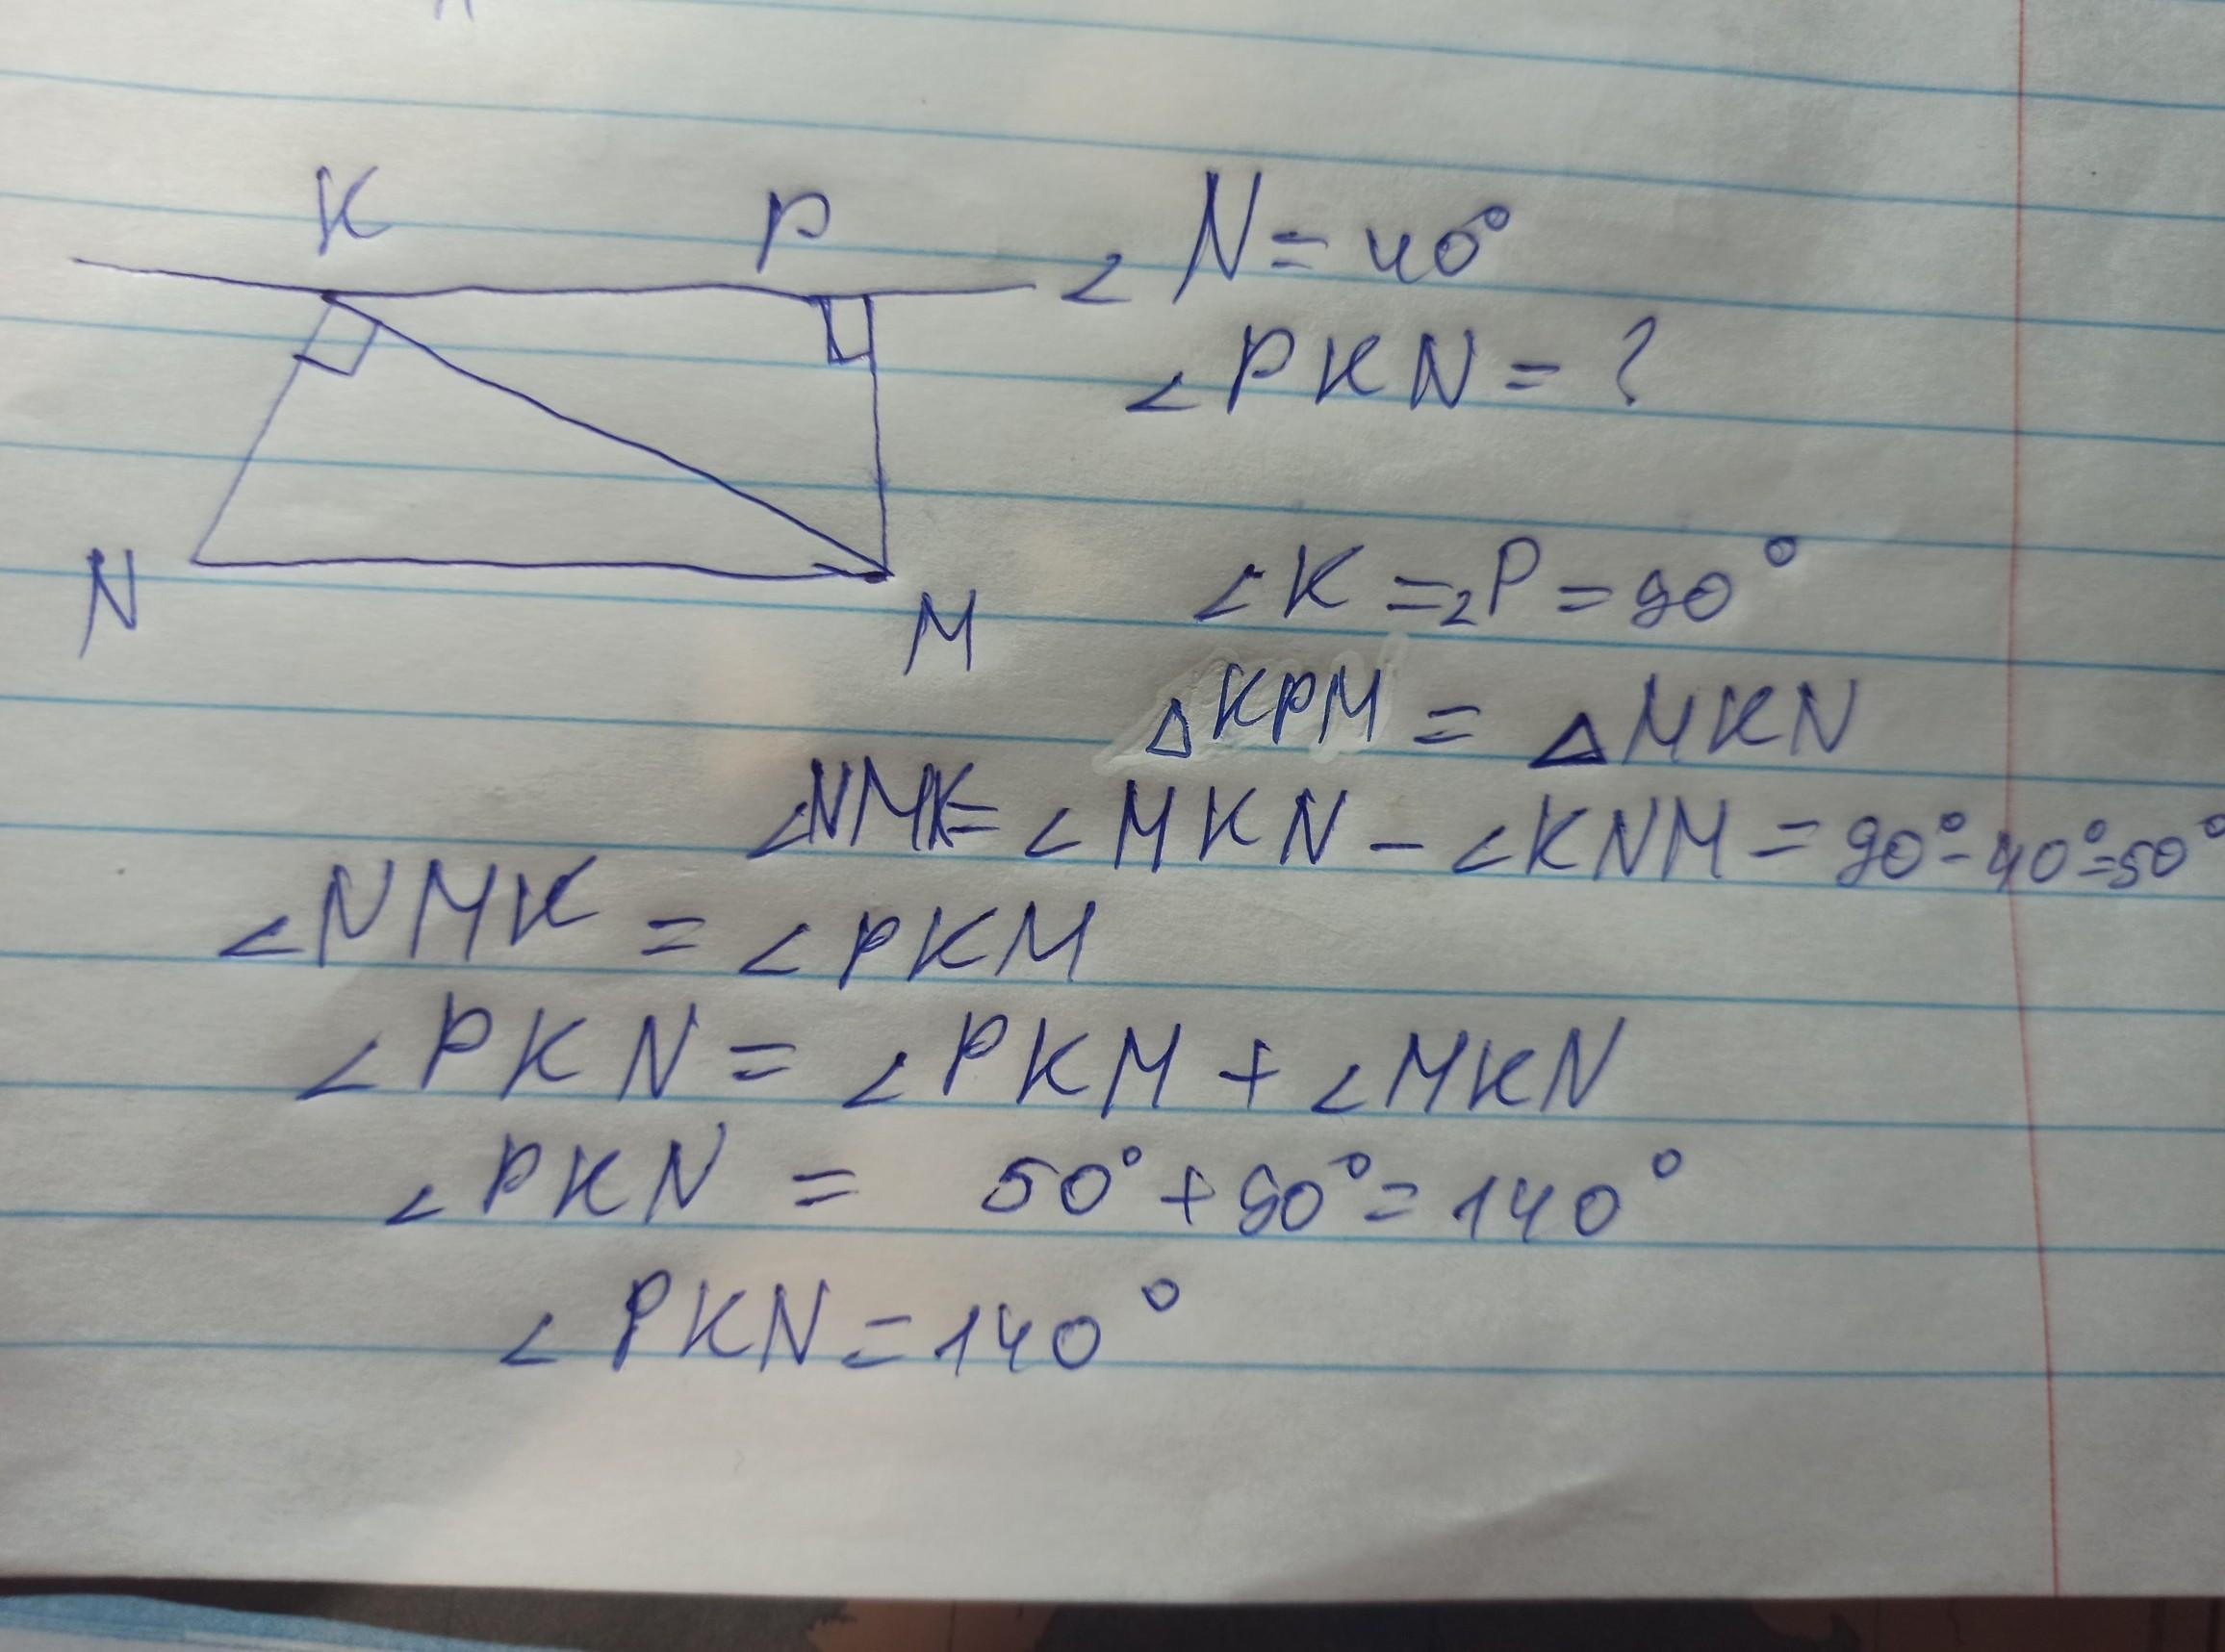 K P
∠N = 40°
∠PKN = ?
N M
∠K = ∠P = 90°
△KPM = △MKN
∠NMK = ∠MKN - ∠KNM = 90° - 40° = 50°
∠NMK = ∠PKM
∠PKN = ∠PKM + ∠MKN
∠PKN = 50° + 90° = 140°
∠PKN = 140°